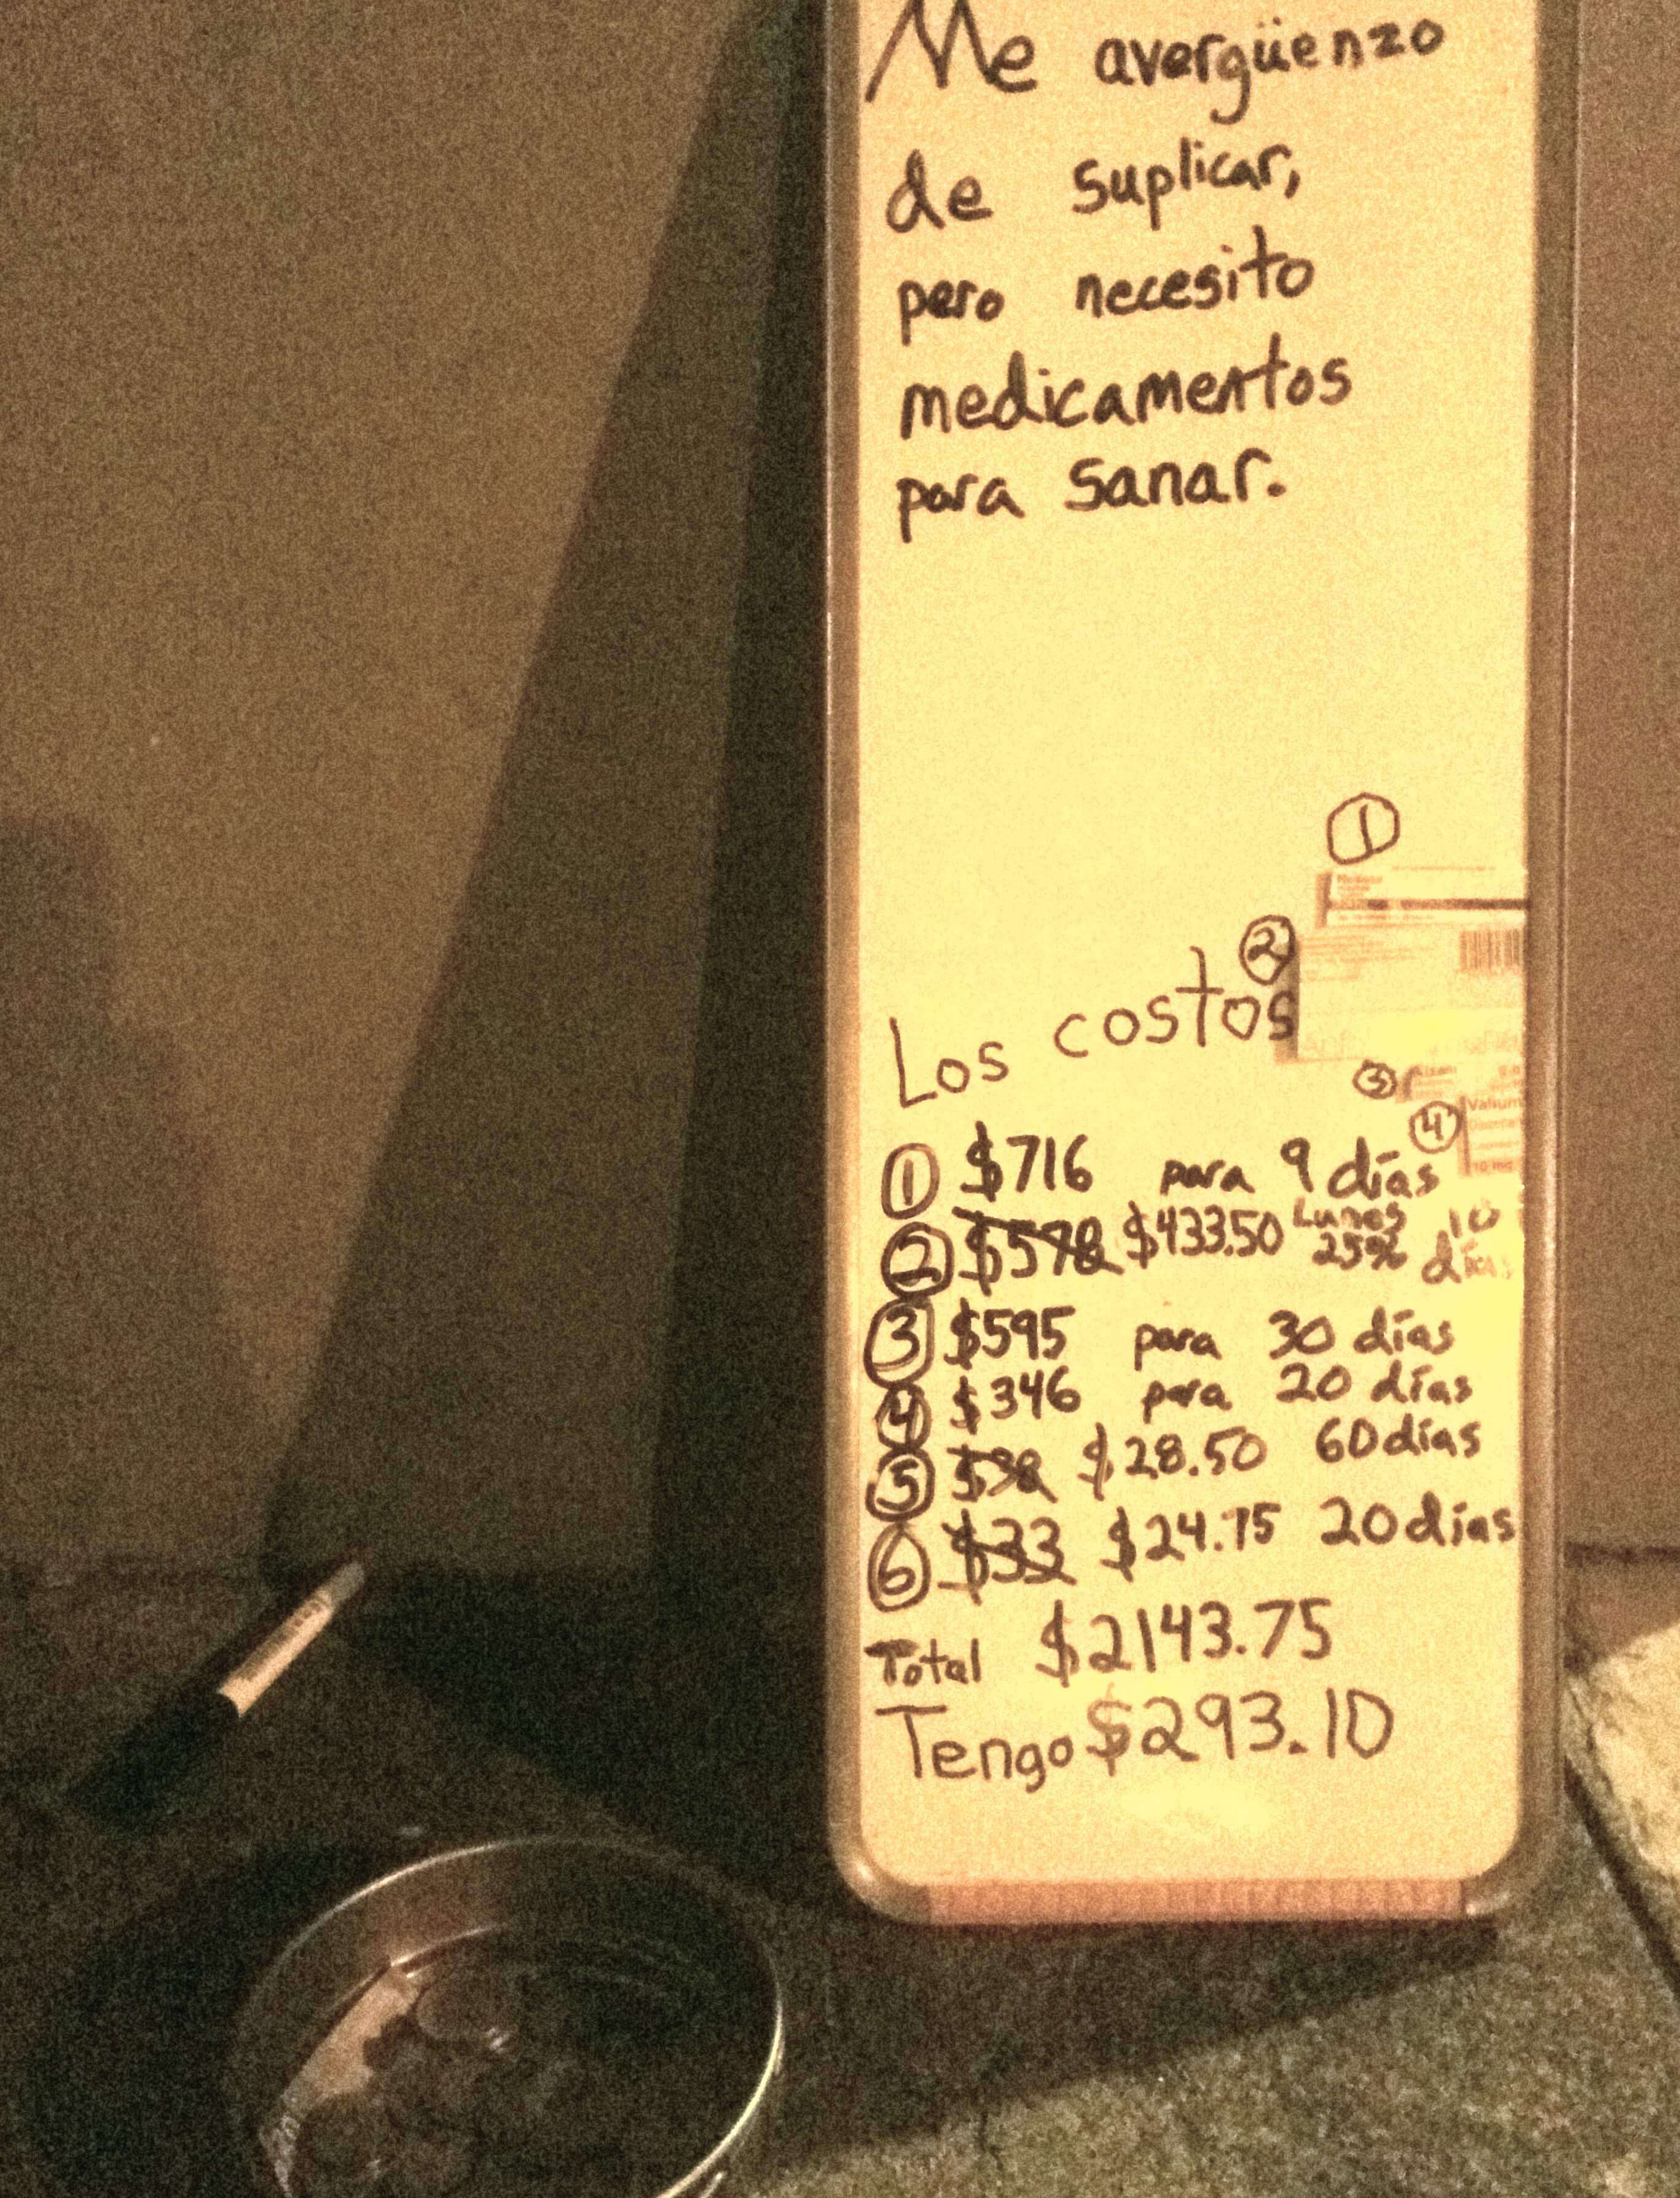 Me avergüenzo
de suplicar,
pero necesito
medicamentos
para sanar.
①
②
Los costos
③
④
Valium
10 mg
① $716 para 9 días
② $578 $433.50 Lunes 25% 10 días
③ $595 para 30 días
④ $346 para 20 días
⑤ $38 $28.50 60 días
⑥ $33 $24.75 20 días
Total $2143.75
Tengo $293.10